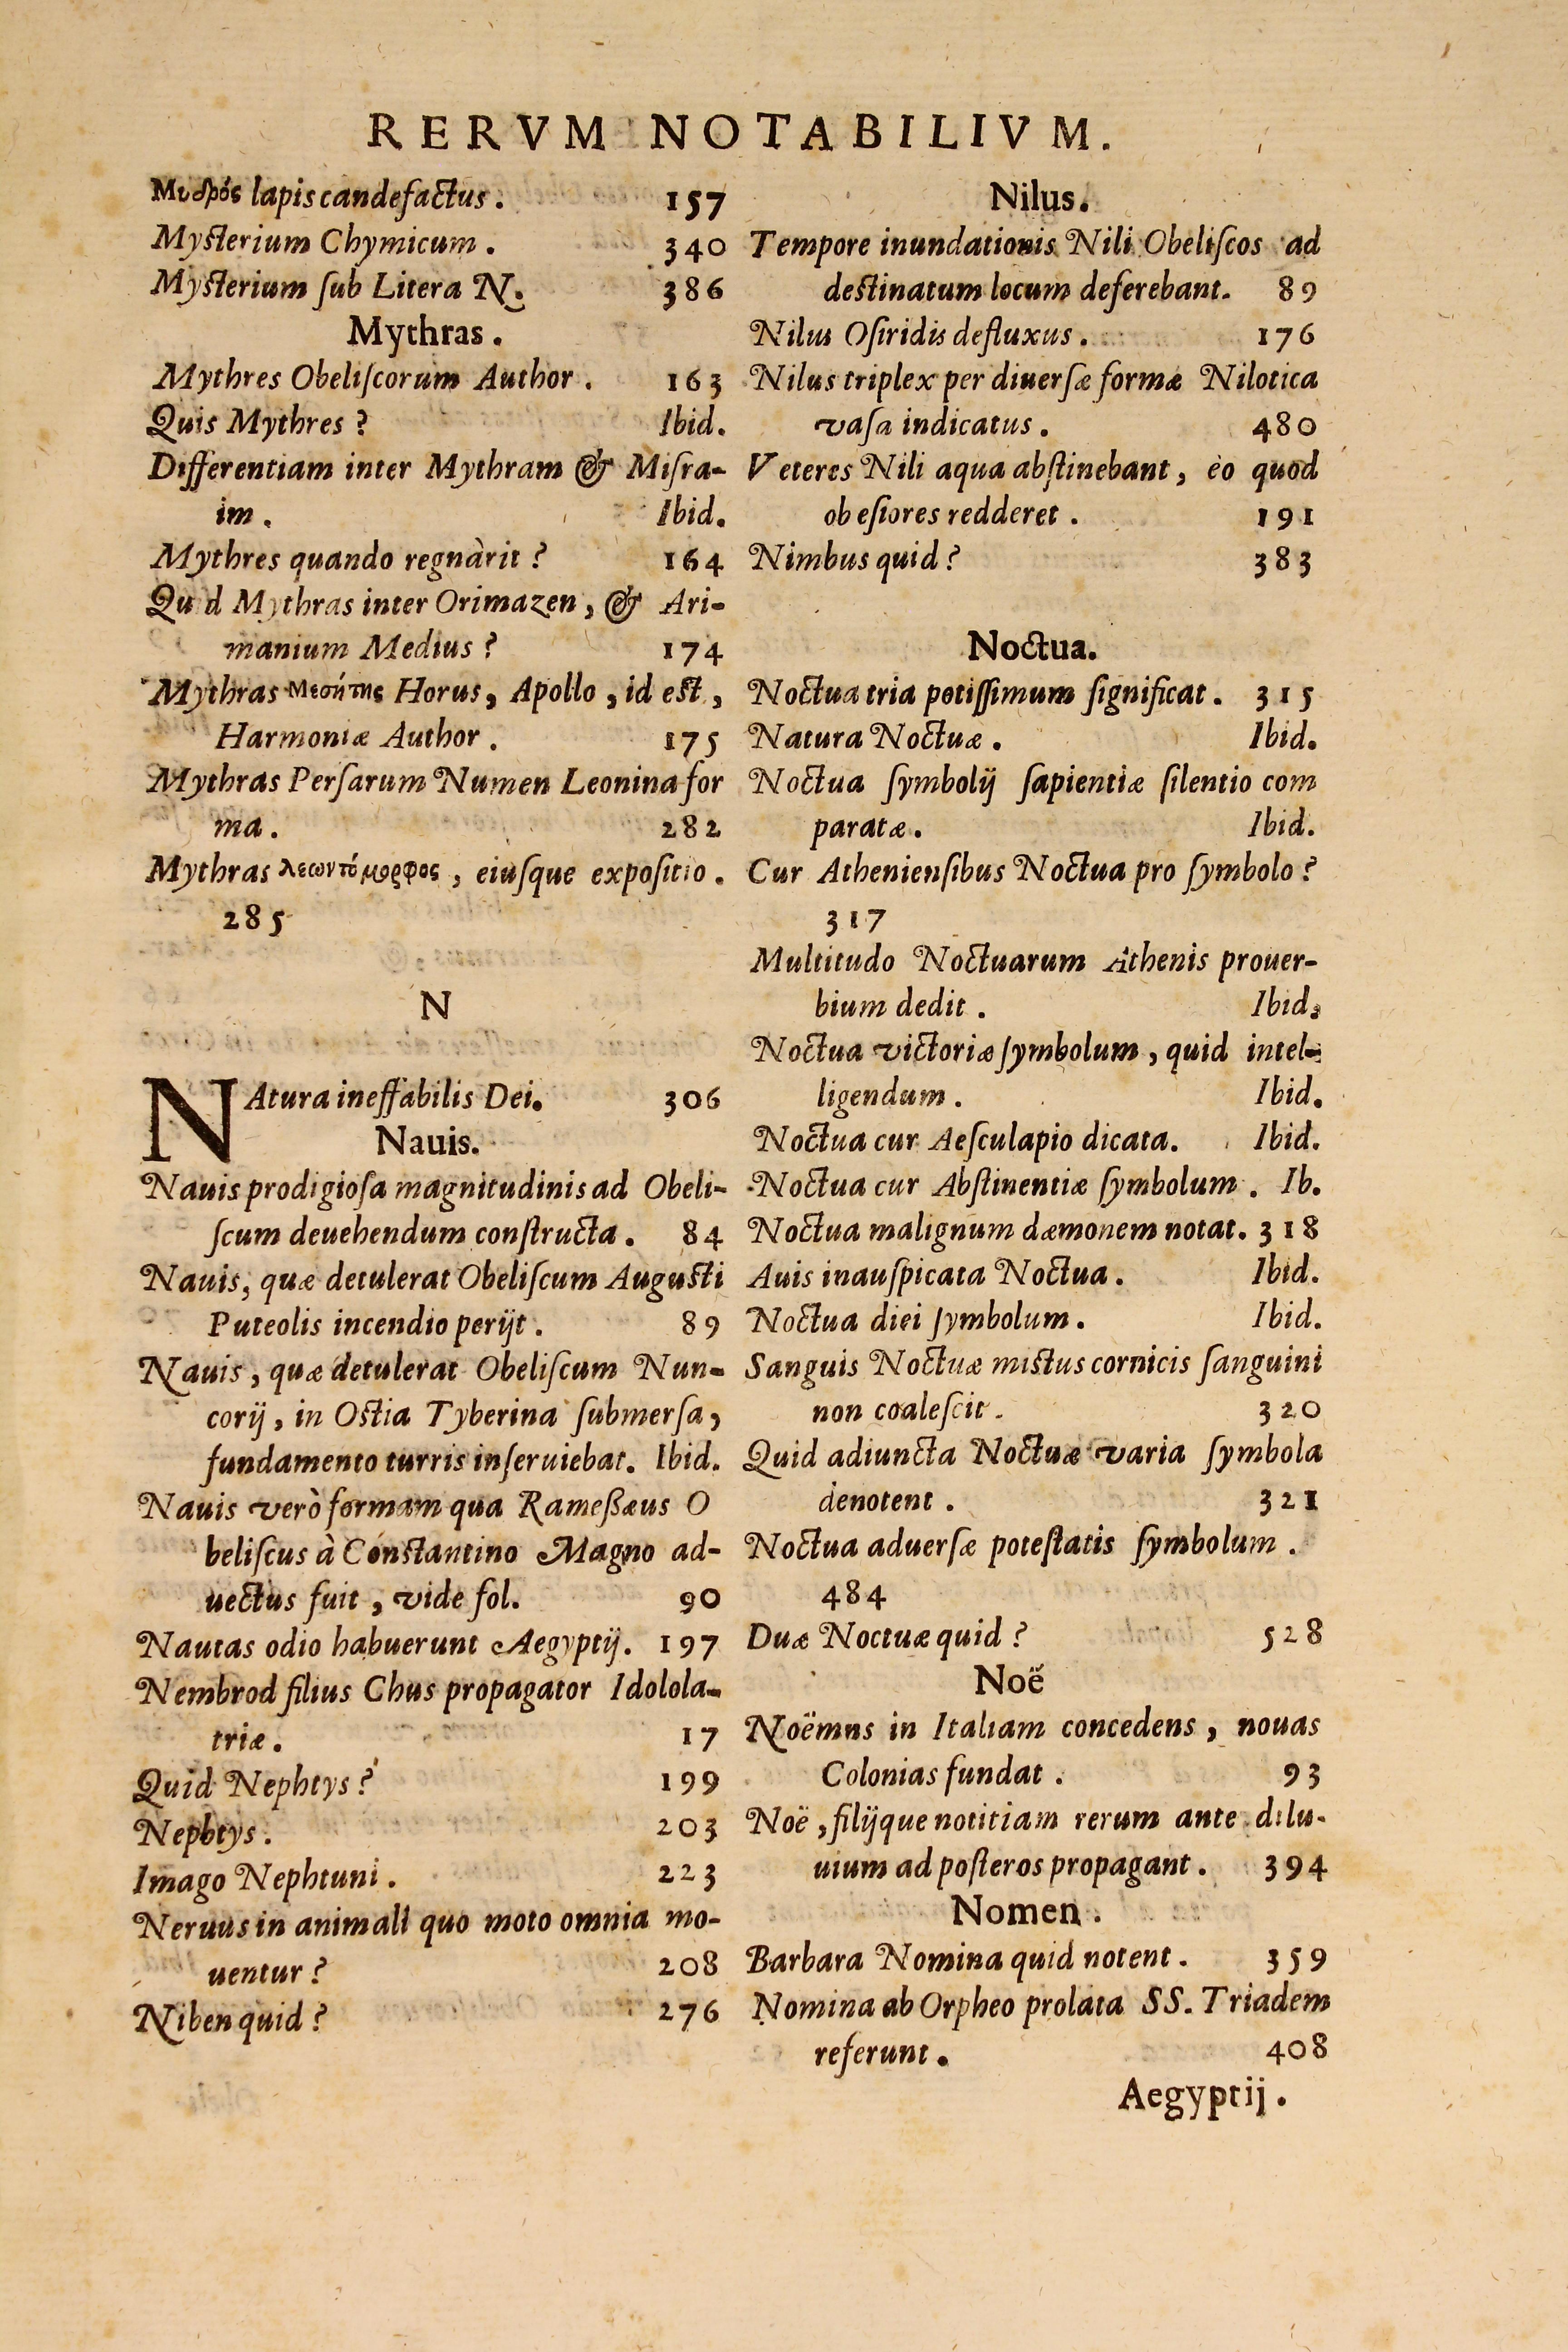 RERVM NOTABILIVM.
Μυδρός lapis candefactus. 157
Mysterium Chymicum. 340
Mysterium ſub Litera N. 386
Mythras.
Mythres Obeliſcorum Author. 163
Quis Mythres? Ibid.
Differentiam inter Mythram & Miſra-
im. Ibid.
Mythres quando regnàrit? 164
Quid Mythras inter Orimazen, & Ari-
manium Medius? 174
Mythras Μεσήτης Horus, Apollo, id est,
Harmoniæ Author. 175
Mythras Perſarum Numen Leonina for
ma. 282
Mythras λεωντόμορφος, eiuſque expoſitio.
285
N
NAtura ineffabilis Dei. 306
Nauis.
Nauis prodigioſa magnitudinis ad Obeli-
ſcum deuehendum conſtructa. 84
Nauis, quæ detulerat Obeliſcum Augusti
Puteolis incendio perijt. 89
Nauis, quæ detulerat Obeliſcum Nun-
corij, in Oſtia Tyberina ſubmerſa,
fundamento turris inſeruiebat. Ibid.
Nauis verò formam qua Rameßæus O
beliſcus à Constantino Magno ad-
uectus fuit, vide fol. 90
Nautas odio habuerunt Aegyptij. 197
Nembrod filius Chus propagator Idolola-
triæ. 17
Quid Nephtys? 199
Nephtys. 203
Imago Nephtuni. 223
Neruus in animali quo moto omnia mo-
uentur? 208
Niben quid? 276
Nilus.
Tempore inundationis Nili Obeliſcos ad
destinatum locum deferebant. 89
Nilus Oſiridis defluxus. 176
Nilus triplex per diuerſæ formæ Nilotica
vaſa indicatus. 480
Veteres Nili aqua abſtinebant, eo quod
obeſiores redderet. 191
Nimbus quid? 383
Noctua.
Noctua tria potiſſimum ſignificat. 315
Natura Noctuæ. Ibid.
Noctua ſymbolij ſapientiæ ſilentio com
paratæ. Ibid.
Cur Athenienſibus Noctua pro ſymbolo?
317
Multitudo Noctuarum Athenis prouer-
bium dedit. Ibid.
Noctua victoriæ ſymbolum, quid intel-
ligendum. Ibid.
Noctua cur Aeſculapio dicata. Ibid.
Noctua cur Abſtinentiæ ſymbolum. Ib.
Noctua malignum dæmonem notat. 318
Auis inauſpicata Noctua. Ibid.
Noctua diei ſymbolum. Ibid.
Sanguis Noctuæ mistus cornicis ſanguini
non coaleſcit. 320
Quid adiuncta Noctuæ varia ſymbola
denotent. 321
Noctua aduerſæ poteſtatis ſymbolum.
484
Duæ Noctuæ quid? 528
Noë
Noëmns in Italiam concedens, nouas
Colonias fundat. 93
Noë, filijque notitiam rerum ante dilu-
uium ad poſteros propagant. 394
Nomen.
Barbara Nomina quid notent. 359
Nomina ab Orpheo prolata SS. Triadem
referunt. 408
Aegyptij.